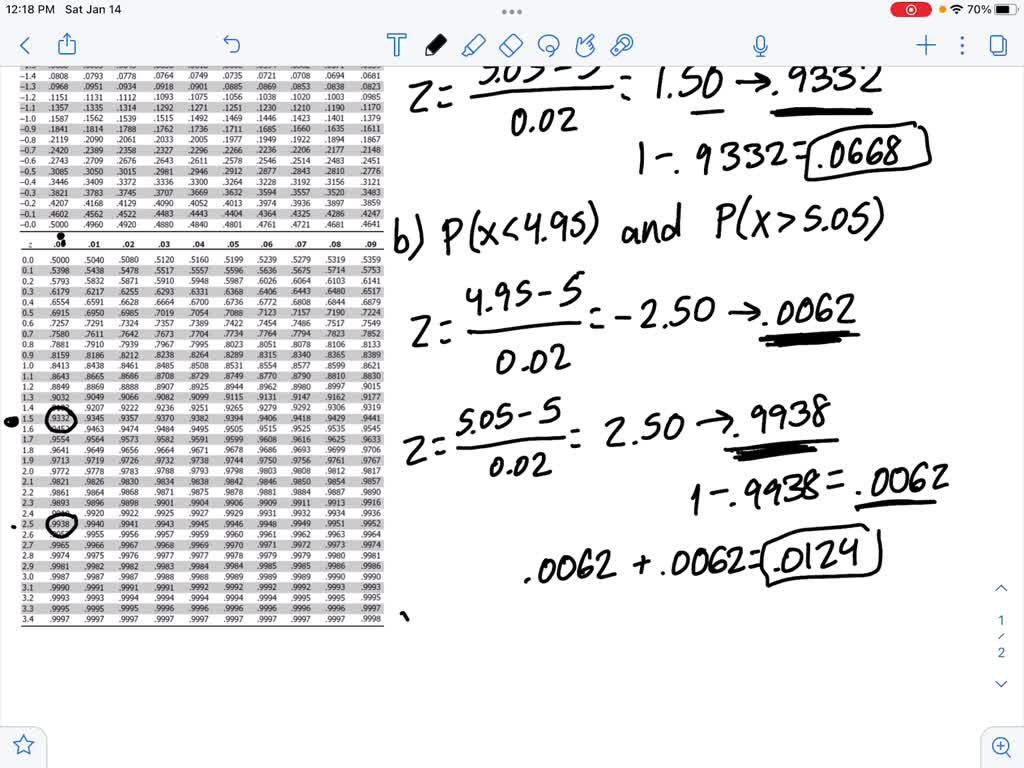 12:18 PM Sat Jan 14
70%
T
−1.4 .0808 .0793 .0778 .0764 .0749 .0735 .0721 .0708 .0694 .0681
−1.3 .0968 .0951 .0934 .0918 .0901 .0885 .0869 .0853 .0838 .0823
−1.2 .1151 .1131 .1112 .1093 .1075 .1056 .1038 .1020 .1003 .0985
−1.1 .1357 .1335 .1314 .1292 .1271 .1251 .1230 .1210 .1190 .1170
−1.0 .1587 .1562 .1539 .1515 .1492 .1469 .1446 .1423 .1401 .1379
−0.9 .1841 .1814 .1788 .1762 .1736 .1711 .1685 .1660 .1635 .1611
−0.8 .2119 .2090 .2061 .2033 .2005 .1977 .1949 .1922 .1894 .1867
−0.7 .2420 .2389 .2358 .2327 .2296 .2266 .2236 .2206 .2177 .2148
−0.6 .2743 .2709 .2676 .2643 .2611 .2578 .2546 .2514 .2483 .2451
−0.5 .3085 .3050 .3015 .2981 .2946 .2912 .2877 .2843 .2810 .2776
−0.4 .3446 .3409 .3372 .3336 .3300 .3264 .3228 .3192 .3156 .3121
−0.3 .3821 .3783 .3745 .3707 .3669 .3632 .3594 .3557 .3520 .3483
−0.2 .4207 .4168 .4129 .4090 .4052 .4013 .3974 .3936 .3897 .3859
−0.1 .4602 .4562 .4522 .4483 .4443 .4404 .4364 .4325 .4286 .4247
−0.0 .5000 .4960 .4920 .4880 .4840 .4801 .4761 .4721 .4681 .4641
z .01 .02 .03 .04 .05 .06 .07 .08 .09
0.0 .5000 .5040 .5080 .5120 .5160 .5199 .5239 .5279 .5319 .5359
0.1 .5398 .5438 .5478 .5517 .5557 .5596 .5636 .5675 .5714 .5753
0.2 .5793 .5832 .5871 .5910 .5948 .5987 .6026 .6064 .6103 .6141
0.3 .6179 .6217 .6255 .6293 .6331 .6368 .6406 .6443 .6480 .6517
0.4 .6554 .6591 .6628 .6664 .6700 .6736 .6772 .6808 .6844 .6879
0.5 .6915 .6950 .6985 .7019 .7054 .7088 .7123 .7157 .7190 .7224
0.6 .7257 .7291 .7324 .7357 .7389 .7422 .7454 .7486 .7517 .7549
0.7 .7580 .7611 .7642 .7673 .7704 .7734 .7764 .7794 .7823 .7852
0.8 .7881 .7910 .7939 .7967 .7995 .8023 .8051 .8078 .8106 .8133
0.9 .8159 .8186 .8212 .8238 .8264 .8289 .8315 .8340 .8365 .8389
1.0 .8413 .8438 .8461 .8485 .8508 .8531 .8554 .8577 .8599 .8621
1.1 .8643 .8665 .8686 .8708 .8729 .8749 .8770 .8790 .8810 .8830
1.2 .8849 .8869 .8888 .8907 .8925 .8944 .8962 .8980 .8997 .9015
1.3 .9032 .9049 .9066 .9082 .9099 .9115 .9131 .9147 .9162 .9177
1.4 .9207 .9222 .9236 .9251 .9265 .9279 .9292 .9306 .9319
1.5 .9332 .9345 .9357 .9370 .9382 .9394 .9406 .9418 .9429 .9441
1.6 .9463 .9474 .9484 .9495 .9505 .9515 .9525 .9535 .9545
1.7 .9554 .9564 .9573 .9582 .9591 .9599 .9608 .9616 .9625 .9633
1.8 .9641 .9649 .9656 .9664 .9671 .9678 .9686 .9693 .9699 .9706
1.9 .9713 .9719 .9726 .9732 .9738 .9744 .9750 .9756 .9761 .9767
2.0 .9772 .9778 .9783 .9788 .9793 .9798 .9803 .9808 .9812 .9817
2.1 .9821 .9826 .9830 .9834 .9838 .9842 .9846 .9850 .9854 .9857
2.2 .9861 .9864 .9868 .9871 .9875 .9878 .9881 .9884 .9887 .9890
2.3 .9893 .9896 .9898 .9901 .9904 .9906 .9909 .9911 .9913 .9916
2.4 .9920 .9922 .9925 .9927 .9929 .9931 .9932 .9934 .9936
2.5 .9938 .9940 .9941 .9943 .9945 .9946 .9948 .9949 .9951 .9952
2.6 .9955 .9956 .9957 .9959 .9960 .9961 .9962 .9963 .9964
2.7 .9965 .9966 .9967 .9968 .9969 .9970 .9971 .9972 .9973 .9974
2.8 .9974 .9975 .9976 .9977 .9977 .9978 .9979 .9979 .9980 .9981
2.9 .9981 .9982 .9982 .9983 .9984 .9984 .9985 .9985 .9986 .9986
3.0 .9987 .9987 .9987 .9988 .9988 .9989 .9989 .9989 .9990 .9990
3.1 .9990 .9991 .9991 .9991 .9992 .9992 .9992 .9992 .9993 .9993
3.2 .9993 .9993 .9994 .9994 .9994 .9994 .9994 .9995 .9995 .9995
3.3 .9995 .9995 .9995 .9996 .9996 .9996 .9996 .9996 .9996 .9997
3.4 .9997 .9997 .9997 .9997 .9997 .9997 .9997 .9997 .9997 .9998
Z = 5.05-5 / 0.02 = 1.50 → .9332
1 - .9332 = .0668
b) P(x<4.95) and P(x>5.05)
Z = 4.95-5 / 0.02 = -2.50 → .0062
Z = 5.05-5 / 0.02 = 2.50 → .9938
1 - .9938 = .0062
.0062 + .0062 = .0124
1
/
2